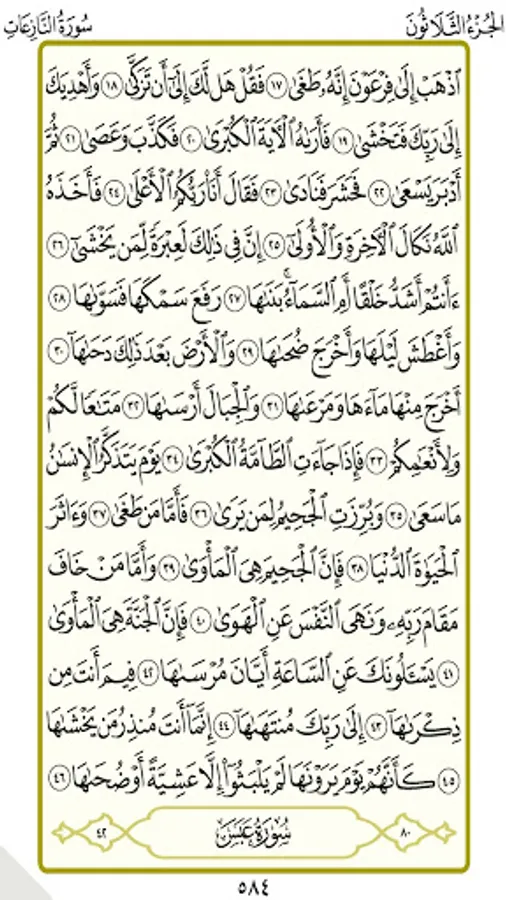 الجزء الثلاثون سورة النازعات
ٱذْهَبْ إِلَىٰ فِرْعَوْنَ إِنَّهُۥ طَغَىٰ ١٧ فَقُلْ هَل لَّكَ إِلَىٰٓ أَن تَزَكَّىٰ ١٨ وَأَهْدِيَكَ
إِلَىٰ رَبِّكَ فَتَخْشَىٰ ١٩ فَأَرَىٰهُ ٱلْـَٔايَةَ ٱلْكُبْرَىٰ ٢٠ فَكَذَّبَ وَعَصَىٰ ٢١ ثُمَّ
أَدْبَرَ يَسْعَىٰ ٢٢ فَحَشَرَ فَنَادَىٰ ٢٣ فَقَالَ أَنَا۠ رَبُّكُمُ ٱلْأَعْلَىٰ ٢٤ فَأَخَذَهُ
ٱللَّهُ نَكَالَ ٱلْـَٔاخِرَةِ وَٱلْأُولَىٰٓ ٢٥ إِنَّ فِي ذَٰلِكَ لَعِبْرَةً لِّمَن يَخْشَىٰٓ ٢٦
ءَأَنتُمْ أَشَدُّ خَلْقًا أَمِ ٱلسَّمَآءُ ۚ بَنَىٰهَا ٢٧ رَفَعَ سَمْكَهَا فَسَوَّىٰهَا ٢٨
وَأَغْطَشَ لَيْلَهَا وَأَخْرَجَ ضُحَىٰهَا ٢٩ وَٱلْأَرْضَ بَعْدَ ذَٰلِكَ دَحَىٰهَآ ٣٠
أَخْرَجَ مِنْهَا مَآءَهَا وَمَرْعَىٰهَا ٣١ وَٱلْجِبَالَ أَرْسَىٰهَا ٣٢ مَتَٰعًا لَّكُمْ
وَلِأَنْعَٰمِكُمْ ٣٣ فَإِذَا جَآءَتِ ٱلطَّآمَّةُ ٱلْكُبْرَىٰ ٣٤ يَوْمَ يَتَذَكَّرُ ٱلْإِنسَٰنُ
مَا سَعَىٰ ٣٥ وَبُرِّزَتِ ٱلْجَحِيمُ لِمَن يَرَىٰ ٣٦ فَأَمَّا مَن طَغَىٰ ٣٧ وَءَاثَرَ
ٱلْحَيَوٰةَ ٱلدُّنْيَا ٣٨ فَإِنَّ ٱلْجَحِيمَ هِيَ ٱلْمَأْوَىٰ ٣٩ وَأَمَّا مَنْ خَافَ
مَقَامَ رَبِّهِۦ وَنَهَى ٱلنَّفْسَ عَنِ ٱلْهَوَىٰ ٤٠ فَإِنَّ ٱلْجَنَّةَ هِيَ ٱلْمَأْوَىٰ
٤١ يَسْـَٔلُونَكَ عَنِ ٱلسَّاعَةِ أَيَّانَ مُرْسَىٰهَا ٤٢ فِيمَ أَنتَ مِن
ذِكْرَىٰهَآ ٤٣ إِلَىٰ رَبِّكَ مُنتَهَىٰهَآ ٤٤ إِنَّمَآ أَنتَ مُنذِرُ مَن يَخْشَىٰهَا
٤٥ كَأَنَّهُمْ يَوْمَ يَرَوْنَهَا لَمْ يَلْبَثُوٓا۟ إِلَّا عَشِيَّةً أَوْ ضُحَىٰهَا ٤٦
٨٠ سورة عبس ٤٢
٥٨٤